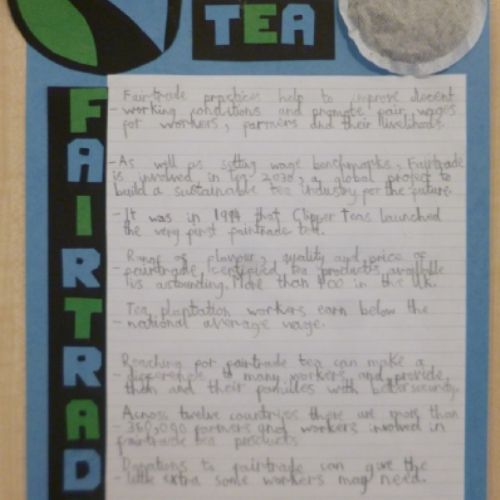 TEA
FAIRTRAD
Fairtrade practices help to improve decent
- working conditions and promote fair wages
for workers, farmers and their livelihoods.
- As well as setting wage benchmarks, Fairtrade
is involved in tea 2030, a global project to
build a sustainable tea industry for the future.
- It was in 1994 that Clipper Teas launched
the very first fairtrade tea.
Range of flavour, quality and price of
- fairtrade certified tea products available
is astounding. More than 400 in the UK.
Tea plantation workers earn below the
- national average wage.
Reaching for fairtrade tea can make a
- difference to many workers and provide
them and their families with better security.
Across twelve countries there are more than
- 360,000 farmers and workers involved in
fairtrade tea products
Donations to fairtrade can give the
- little extra some workers may need.